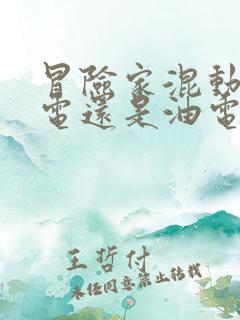 冒險家混動
電還是油電
王哲付
未经同意禁止转载